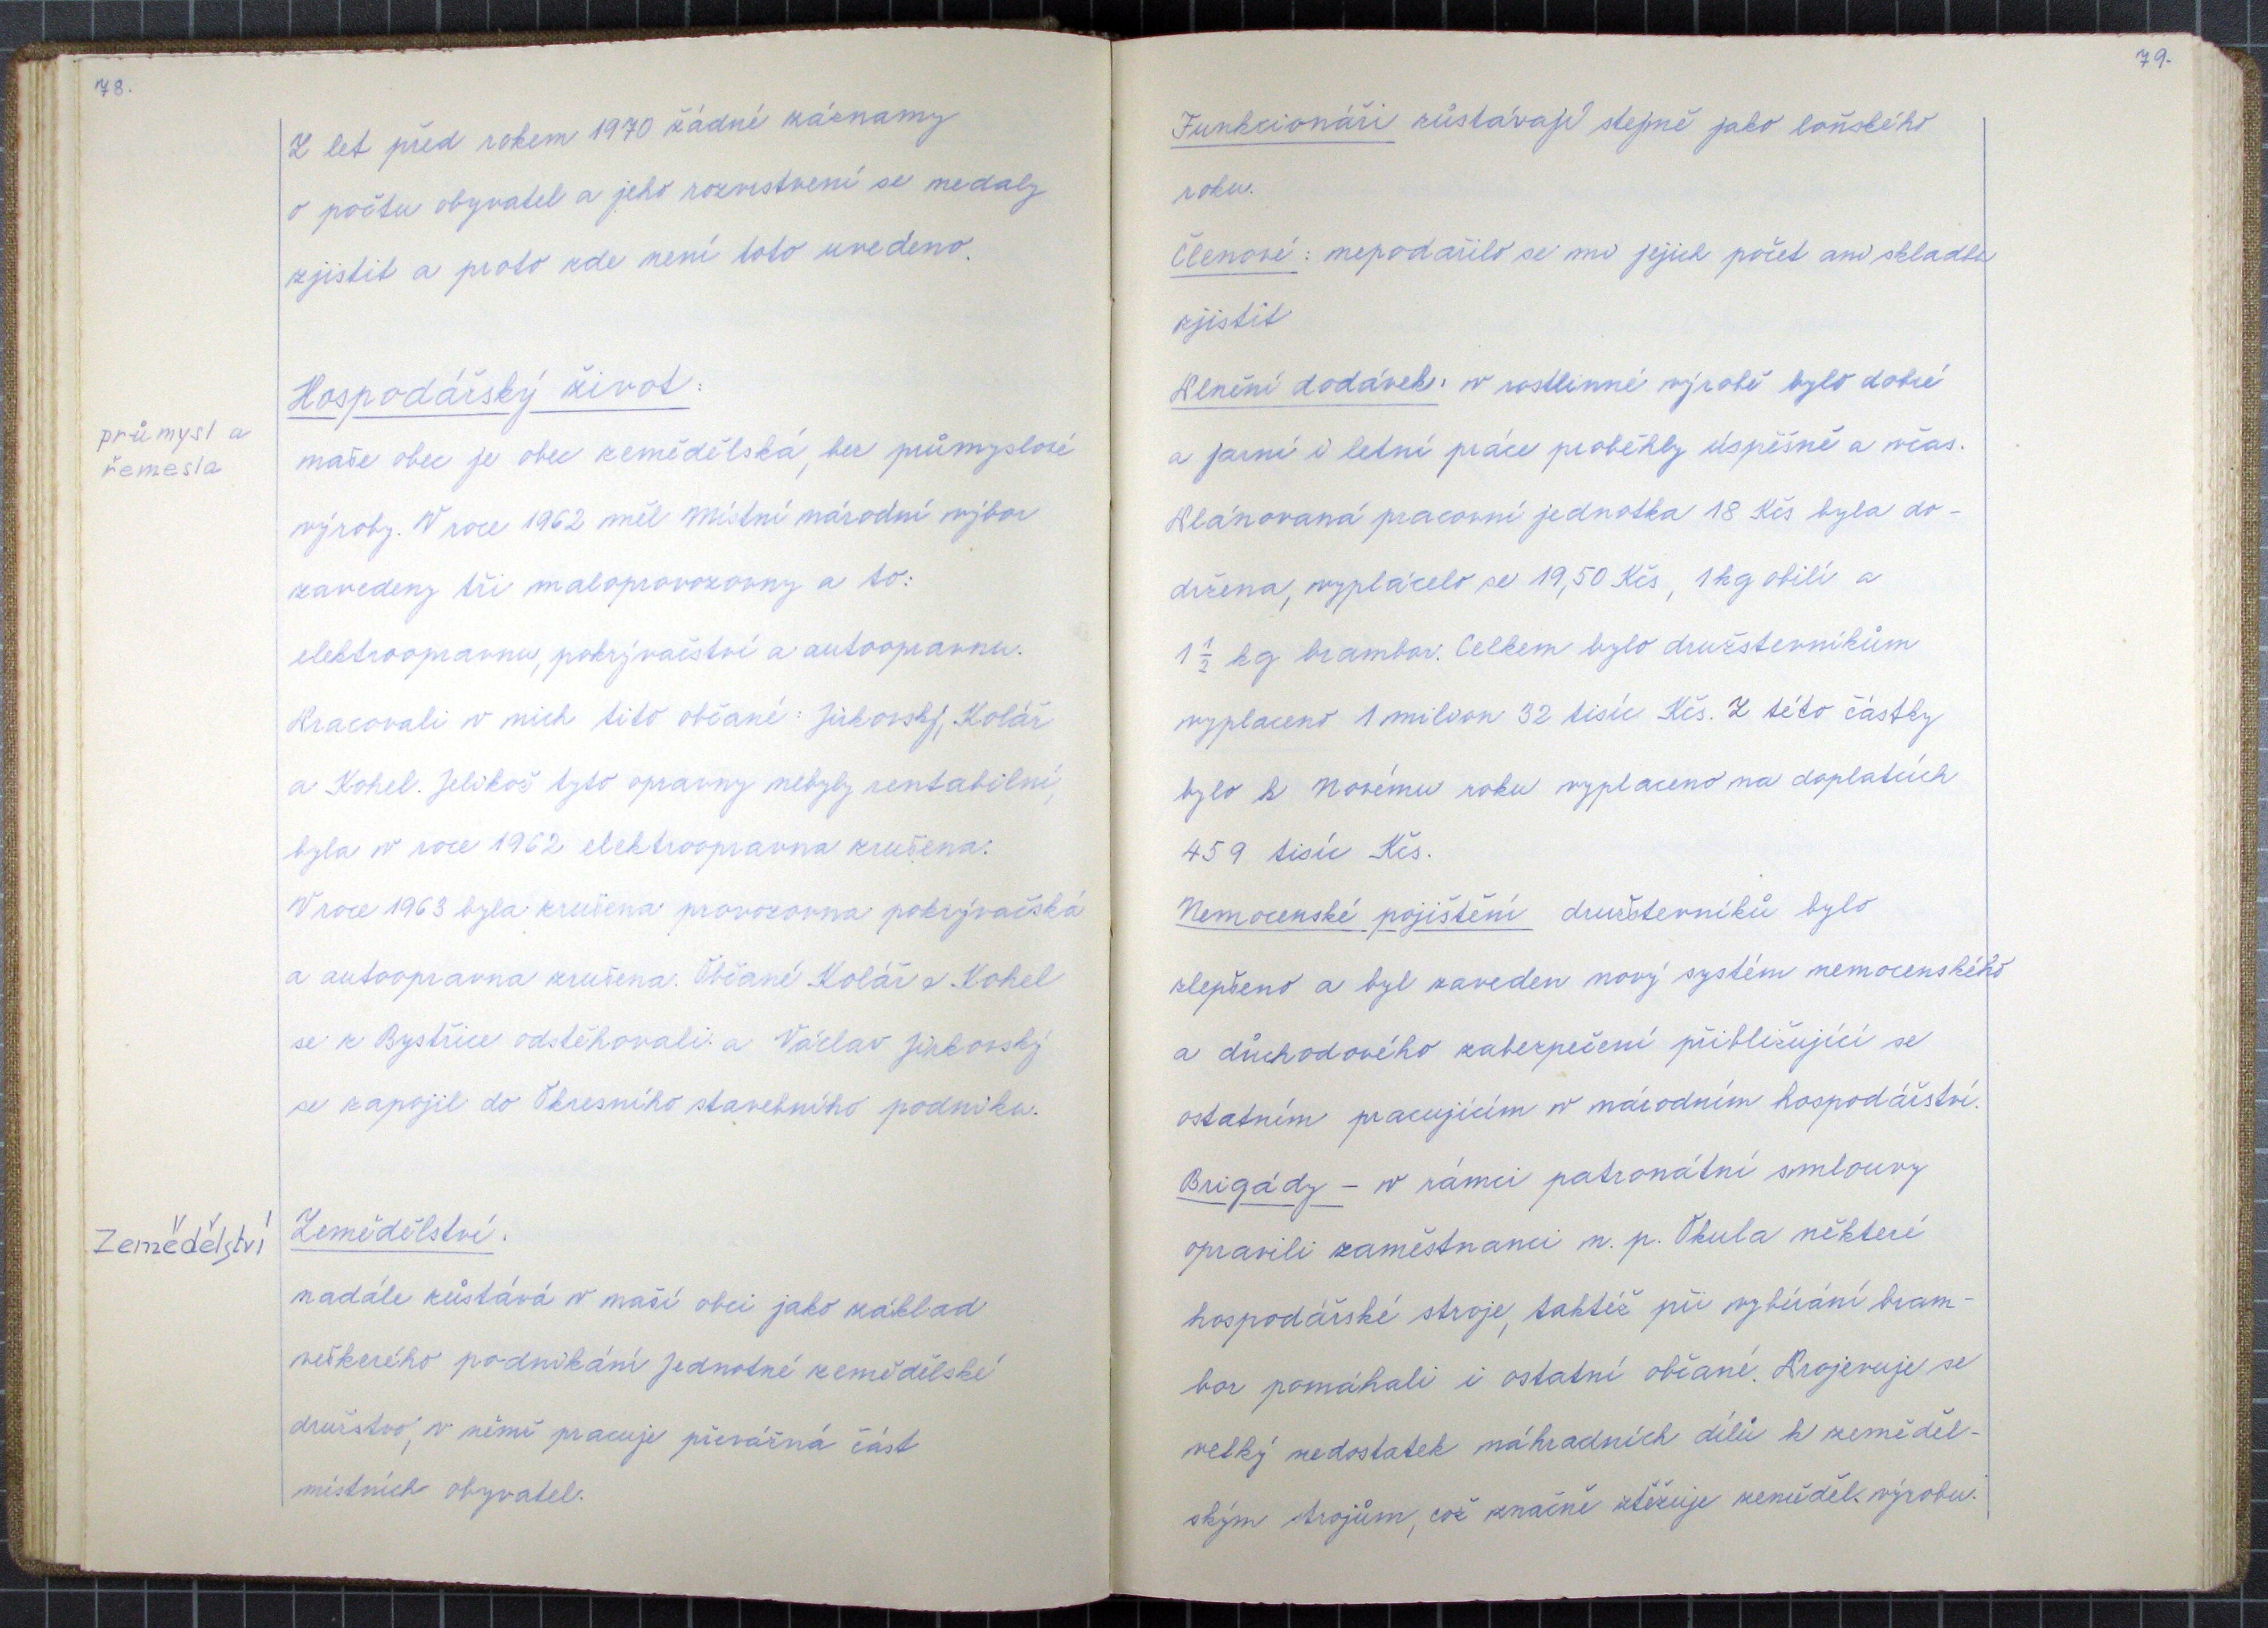 78.
Z let před rokem 1970 žádné záznamy
o počtu obyvatel a jeho rozvrstvení se nedaly
zjistit a proto zde není toto uvedeno.
Hospodářský život:
průmysl a
řemesla
naše obec je obec zemědělská, bez průmyslové
výroby. V roce 1962 měl Místní národní výbor
zavedeny tři maloprovozovny a to:
elektroopravnu, pokrývačství a autoopravnu.
Pracovali v nich tito občané: Jirkovský, Kolář
a Kohel. Jelikož tyto opravny nebyly rentabilní,
byla v roce 1962 elektroopravna zrušena.
V roce 1963 byla zrušena provozovna pokrývačská
a autoopravna zrušena. Občané Kolář a Kohel
se z Bystřice odstěhovali a Václav Jirkovský
se zapojil do Okresního stavebního podniku.
Zemědělství
Zemědělství.
nadále zůstává v naší obci jako základ
veškerého podnikání Jednotné zemědělské
družstvo, v němž pracuje převážná část
místních obyvatel.
79.
Funkcionáři zůstávají stejně jako loňského
roku.
Členové: nepodařilo se mi jejich počet ani skladbu
zjistit
Plnění dodávek: v rostlinné výrobě bylo dobré
a jarní i letní práce proběhly úspěšně a včas.
Plánovaná pracovní jednotka 18 Kčs byla do-
držena, vyplácelo se 19,50 Kčs, 1 kg obilí a
1 1/2 kg brambor. Celkem bylo družstevníkům
vyplaceno 1 milion 32 tisíc Kčs. Z této částky
bylo k Novému roku vyplaceno na doplatcích
459 tisíc Kčs.
Nemocenské pojištění družstevníků bylo
zlepšeno a byl zaveden nový systém nemocenského
a důchodového zabezpečení přibližující se
ostatním pracujícím v národním hospodářství.
Brigády - v rámci patronátní smlouvy
opravili zaměstnanci n. p. Okula některé
hospodářské stroje, taktéž při vybírání bram-
bor pomáhali i ostatní občané. Projevuje se
velký nedostatek náhradních dílů k zeměděl-
ským strojům, což značně ztěžuje zeměděl. výrobu.